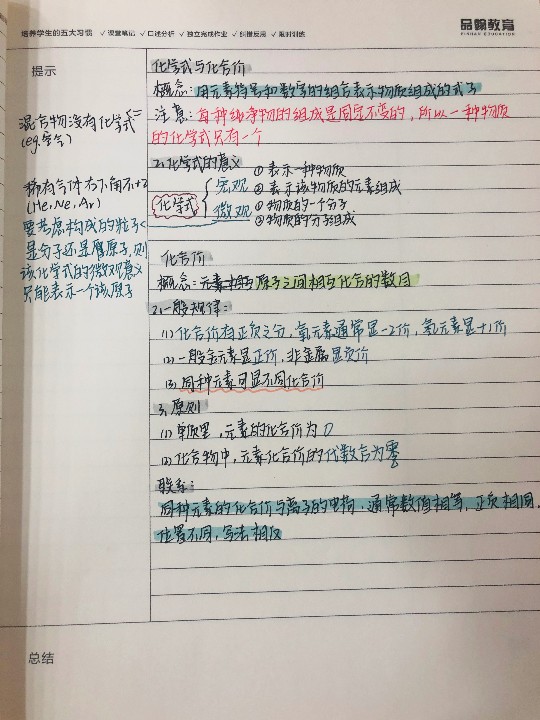 培养学生的五大习惯 ✓课堂笔记 ✓口述分析 ✓独立完成作业 ✓纠错反思 ✓限时训练
品翰教育
PINHAN EDUCATION
提示
化学式与化合价
概念：用元素符号和数字的组合表示物质组成的式子
混合物没有化学式
(eg.空气)
注意：每种纯净物的组成是固定不变的，所以一种物质
的化学式只有一个
2.化学式的意义
化学式
宏观
①表示一种物质
②表示该物质的元素组成
微观
①物质的一个分子
②物质的分子组成
稀有气体右下角不+2
(He,Ne,Ar)
要考虑构成的粒子
是分子还是原子,则
该化学式的微观意义
只能表示一个该原子
化合价
概念：原子之间相互化合的数目
2.一般规律：
(1)化合价有正负之分，氧元素通常显-2价，氢元素显+1价
(2)一般金元素显正价，非金属显负价
(3)同种元素可显不同化合价
3.原则
(1)单质里，元素的化合价为0
(2)化合物中，元素化合价的代数合为零
联系：
同种元素的化合价与离子的电荷，通常数值相等，正负相同，
位置不同，写法相反
总结